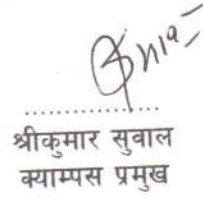 श्रीकुमार सुवाल
क्याम्पस प्रमुख